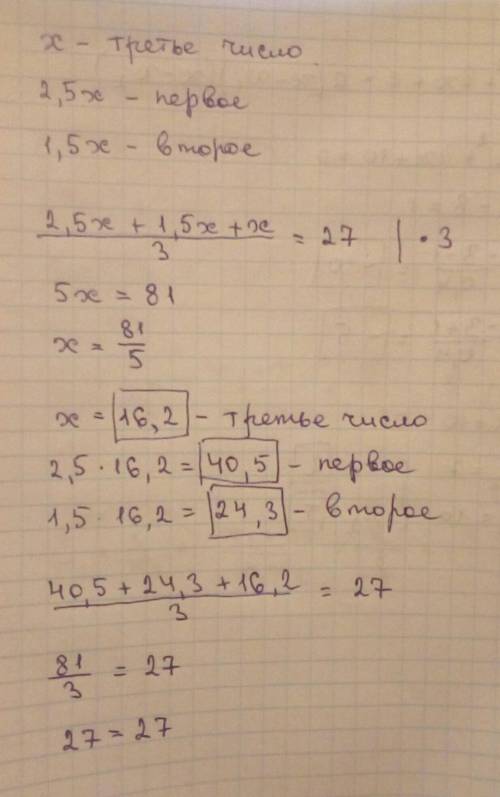 x - третье число
2,5x - первое
1,5x - второе
2,5x + 1,5x + x / 3 = 27 | • 3
5x = 81
x = 81/5
x = 16,2 - третье число
2,5 · 16,2 = 40,5 - первое
1,5 · 16,2 = 24,3 - второе
40,5 + 24,3 + 16,2 / 3 = 27
81/3 = 27
27 = 27